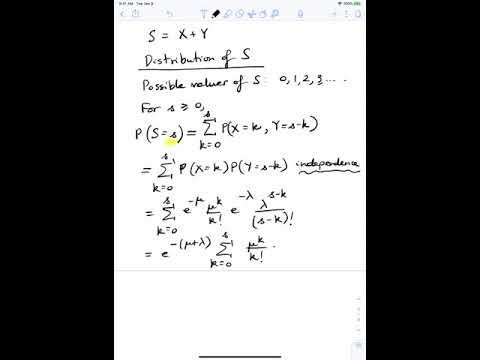 S = X + Y
Distribution of S
Possible values of S: 0, 1, 2, 3, ....
For s ≥ 0,
P(S=s) = Σ_{k=0}^{s} P(X=k, Y=s-k)
= Σ_{k=0}^{s} P(X=k) P(Y=s-k) independence
= Σ_{k=0}^{s} e^{-μ} μ^k/k! e^{-λ} λ^{s-k}/(s-k)!
= e^{-(μ+λ)} Σ_{k=0}^{s} μ^k/k! ·